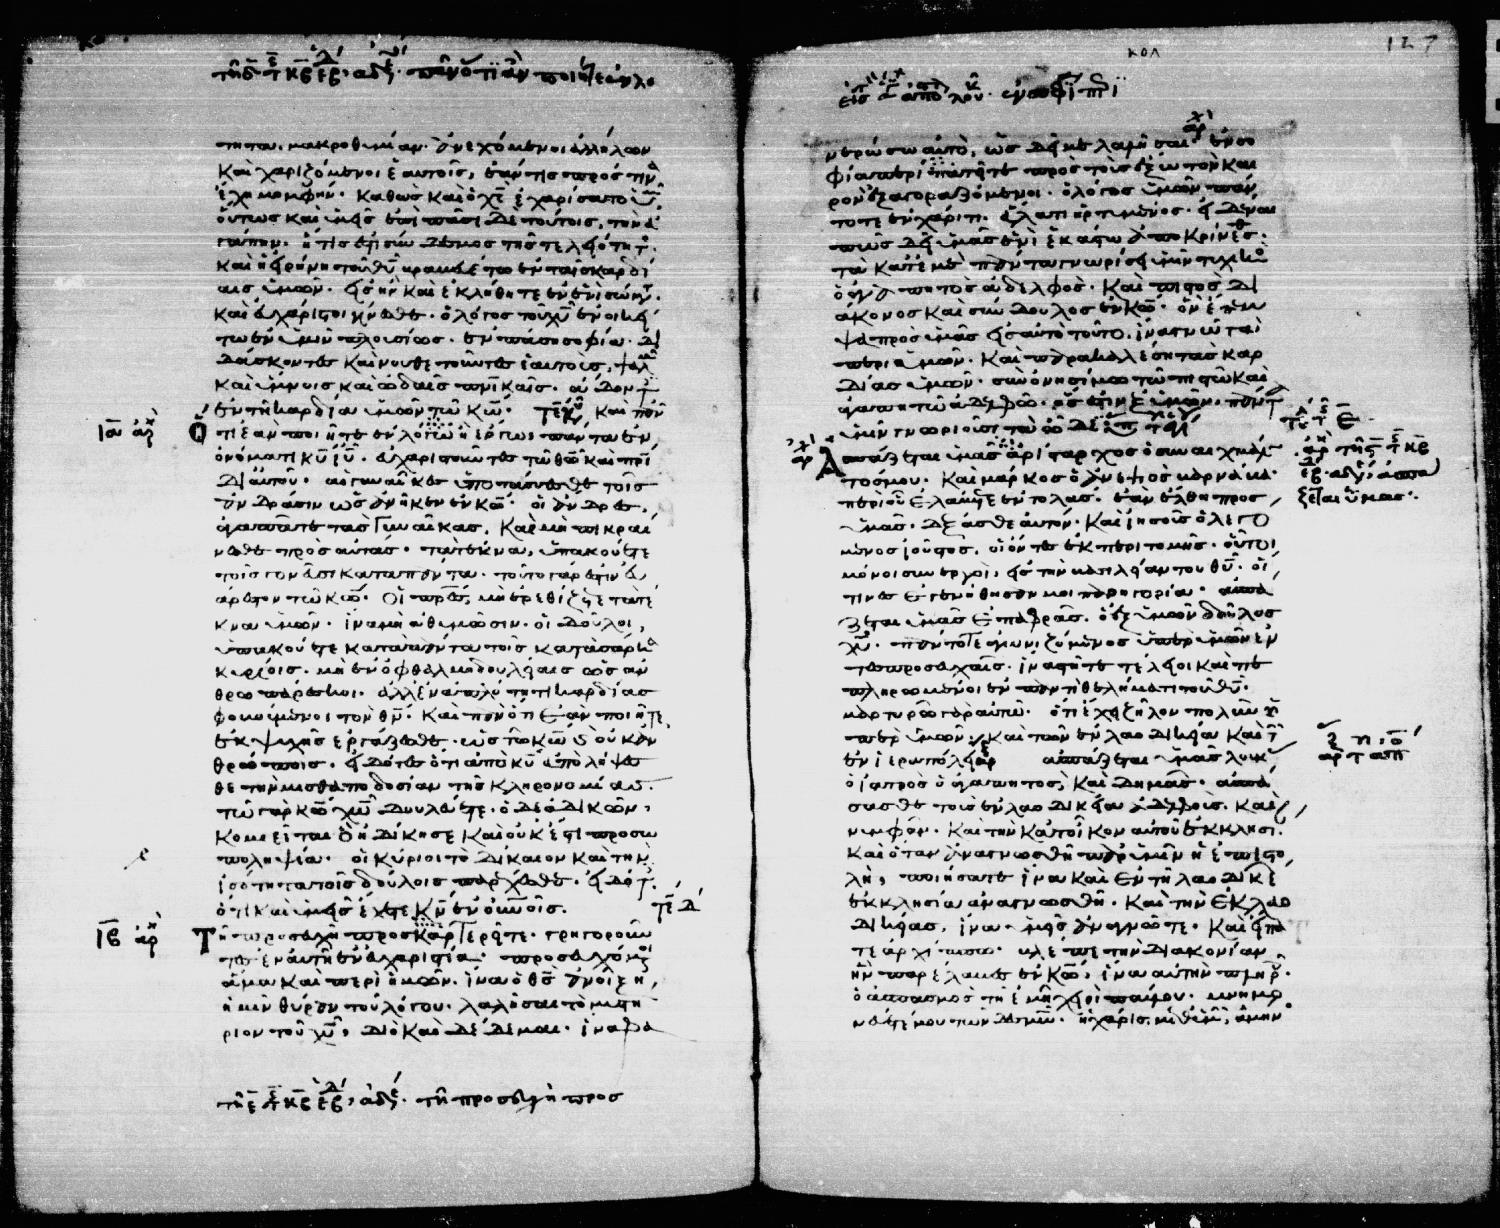 τητα, μακροθυμίαν· ἀνεχόμενοι ἀλλήλων
καὶ χαριζόμενοι ἑαυτοῖς, ἐάν τις πρός τινα
ἔχη μομφήν· καθὼς καὶ ὁ χς ἐχαρίσατο ὑμ
οὕτως καὶ ὑμεῖς· ἐπὶ πᾶσι δὲ τούτοις, τὴν ἀ
γάπην· ἥτις ἐστὶ σύνδεσμος τῆς τελειότητ
καὶ ἡ εἰρήνη τοῦ θυ βραβευέτω ἐν ταῖς καρδί
αις ὑμῶν· εἰς ἣν καὶ ἐκλήθητε ἐν ἑνὶ σώμ
καὶ εὐχάριστοι γίνεσθε· ὁ λόγος τοῦ χυ ἐνοικεί
τω ἐν ὑμῖν πλουσίως· ἐν πάση σοφία· δι
δάσκοντες καὶ νουθετοῦντες ἑαυτοὺς, ψαλμ
καὶ ὕμνοις καὶ ὠδαῖς πνικαῖς· ἄδοντ
ἐν τῆ καρδία ὑμῶν τῶ κω· καὶ πᾶν
ὅτι ἂν ποιῆτε ἐν λόγω ἢ ἔργω, πάντα ἐν
ὀνόματι κυ ιυ· εὐχαριστοῦντες τῶ θω καὶ πρι
δι αὐτοῦ· αἱ γυναῖκες ὑποτάσσεσθε τοῖς
ἀνδράσιν ὡς ἀνῆκεν ἐν κω· οἱ ἄνδρες,
ἀγαπᾶτε τὰς γυναῖκας, καὶ μὴ πικραί
νεσθε πρὸς αὐτάς· τὰ τέκνα, ὑπακούετε
τοῖς γονεῦσι κατὰ πάντα· τοῦτο γάρ ἐστιν εὐ
άρεστον τῶ κω· οἱ πρες, μὴ ἐρεθίζετε τὰ τέ
κνα ὑμῶν· ἵνα μὴ ἀθυμῶσιν· οἱ δοῦλοι,
ὑπακούετε κατὰ πάντα τοῖς κατὰ σάρκα
κυρίοις· μὴ ἐν ὀφθαλμοδουλείαις ὡς ἀν
θρωπάρεσκοι· ἀλλ' ἐν ἁπλότητι καρδίας
φοβούμενοι τὸν θν· καὶ πᾶν ὅτι ἐὰν ποιῆτε,
ἐκ ψυχῆς ἐργάζεσθε· ὡς τῶ κω καὶ οὐκ ἀν
θρώποις· εἰδότες ὅτι ἀπὸ κυ ἀπολήψε
σθε τὴν μισθαποδοσίαν τῆς κληρονομίας·
τῶ γὰρ κω χω δουλεύετε· ὁ δὲ ἀδικῶν,
κομιεῖται ὃ ἠδίκησε καὶ οὐκ ἔστι προσω
ποληψία· οἱ κύριοι τὸ δίκαιον καὶ τὴν
ἰσότητα τοῖς δούλοις παρέχεσθε· εἰδότ
ὅτι καὶ ὑμεῖς ἔχετε κν ἐν οὐνοῖς·
Τῆ προσευχῆ προσκαρτερεῖτε· γρηγοροῦν
τες ἐν αὐτῆ ἐν εὐχαριστία· προσευχόμ
ἅμα καὶ περὶ ἡμῶν· ἵνα ὁ θς ἀνοίξη,
ἡμῖν θύραν τοῦ λόγου· λαλῆσαι τὸ μυστή
ριον τοῦ χυ, διὸ καὶ δέδεμαι· ἵνα φα
τῆ προσευχῆ προς
κολ
127
νερώσω αὐτὸ, ὡς δεῖ με λαλῆσαι· ἐν σο
φία περιπατεῖτε πρὸς τοὺς ἔξω τὸν και
ρὸν ἐξαγοραζόμενοι· ὁ λόγος ὑμῶν πάν
τοτε ἐν χάριτι· ἅλατι ἠρτυμένος· εἰδέναι
πῶς δεῖ ὑμᾶς ἑνὶ ἑκάστω ἀποκρίνεσθ·
τὰ κατ' ἐμὲ πάντα γνωρίσει ὑμῖν τυχικὸς
ὁ ἀγαπητὸς ἀδελφὸς· καὶ πιστὸς δι
άκονος καὶ σύνδουλος ἐν κω· ὃν ἔπεμ
ψα πρὸς ὑμᾶς εἰς αὐτὸ τοῦτο, ἵνα γνῶ τὰ
περὶ ὑμῶν· καὶ παρακαλέση τὰς καρ
δίας ὑμῶν· σὺν ὀνησίμω τῶ πιστῶ καὶ
ἀγαπητῶ ἀδελφῶ· ὅς ἐστιν ἐξ ὑμῶν· πάντ
ὑμῖν γνωριοῦσι τὰ ὧδε·
Ἀσπάζεται ὑμᾶς ἀρίσταρχος ὁ συναιχμάλω
τος μου· καὶ μάρκος ὁ ἀνεψιὸς βαρνάβα·
περὶ οὗ ἐλάβετε ἐντολὰς· ἐὰν ἔλθη πρὸς
ὑμᾶς· δέξασθε αὐτόν· καὶ ἰησοῦς ὁ λεγό
μενος ἰοῦστος, οἱ ὄντες ἐκ περιτομῆς· οὗτοι
μόνοι συνεργοὶ, εἰς τὴν βασιλείαν τοῦ θυ· οἵ
τινες ἐγενήθησάν μοι παρηγορία· ἀσπά
ζεται ὑμᾶς ἐπαφρᾶς· ὁ ἐξ ὑμῶν δοῦλος
χυ· πάντοτε ἀγωνιζόμενος ὑπὲρ ὑμῶν ἐν
ταῖς προσευχαῖς· ἵνα στῆτε τέλειοι καὶ πε
πληρωμένοι ἐν παντὶ θελήματι τοῦ θυ·
μαρτυρῶ γὰρ αὐτῶ· ὅτι ἔχει ζῆλον πολὺν
ὑπὲρ ὑμῶν· καὶ τῶν ἐν λαοδικεία καὶ τ
ἐν ἱεραπόλει ἀσπάζεται ὑμᾶς λουκ
ὁ ἰατρὸς ὁ ἀγαπητὸς, καὶ δημᾶς· ἀσπά
σασθε τοὺς ἐν λαοδικεία ἀδελφοὺς· καὶ
νυμφᾶν· καὶ τὴν κατ' οἶκον αὐτοῦ ἐκκλησί·
καὶ ὅταν ἀναγνωσθῆ παρ' ὑμῖν ἡ ἐπιστο
λὴ, ποιήσατε ἵνα καὶ ἐν τῆ λαοδικέ
ἐκκλησία ἀναγνωσθῆ· καὶ τὴν ἐκ λαο
δικείας, ἵνα ὑμεῖς ἀναγνῶτε· καὶ εἴπα
τε ἀρχίππω· βλέπε τὴν διακονίαν
ἣν παρέλαβες ἐν κω, ἵνα αὐτὴν πληρ·
ὁ ἀσπασμὸς τῆ ἐμῆ χειρὶ παύλου· μνημο
νεύετέ μου τῶν δεσμῶν· ἡ χάρις μεθ' ὑμ, ἀμήν·